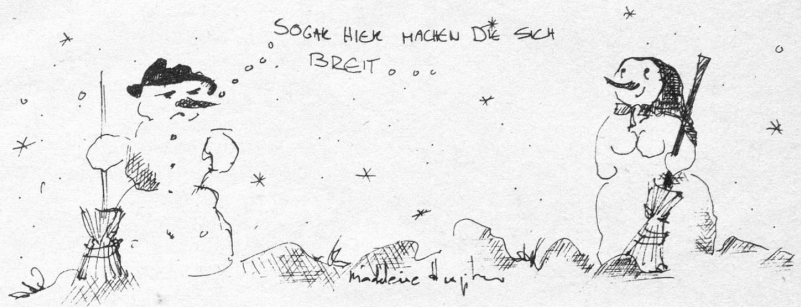 SOGAR HIER MACHEN DIE SICH
BREIT...
Madeleine